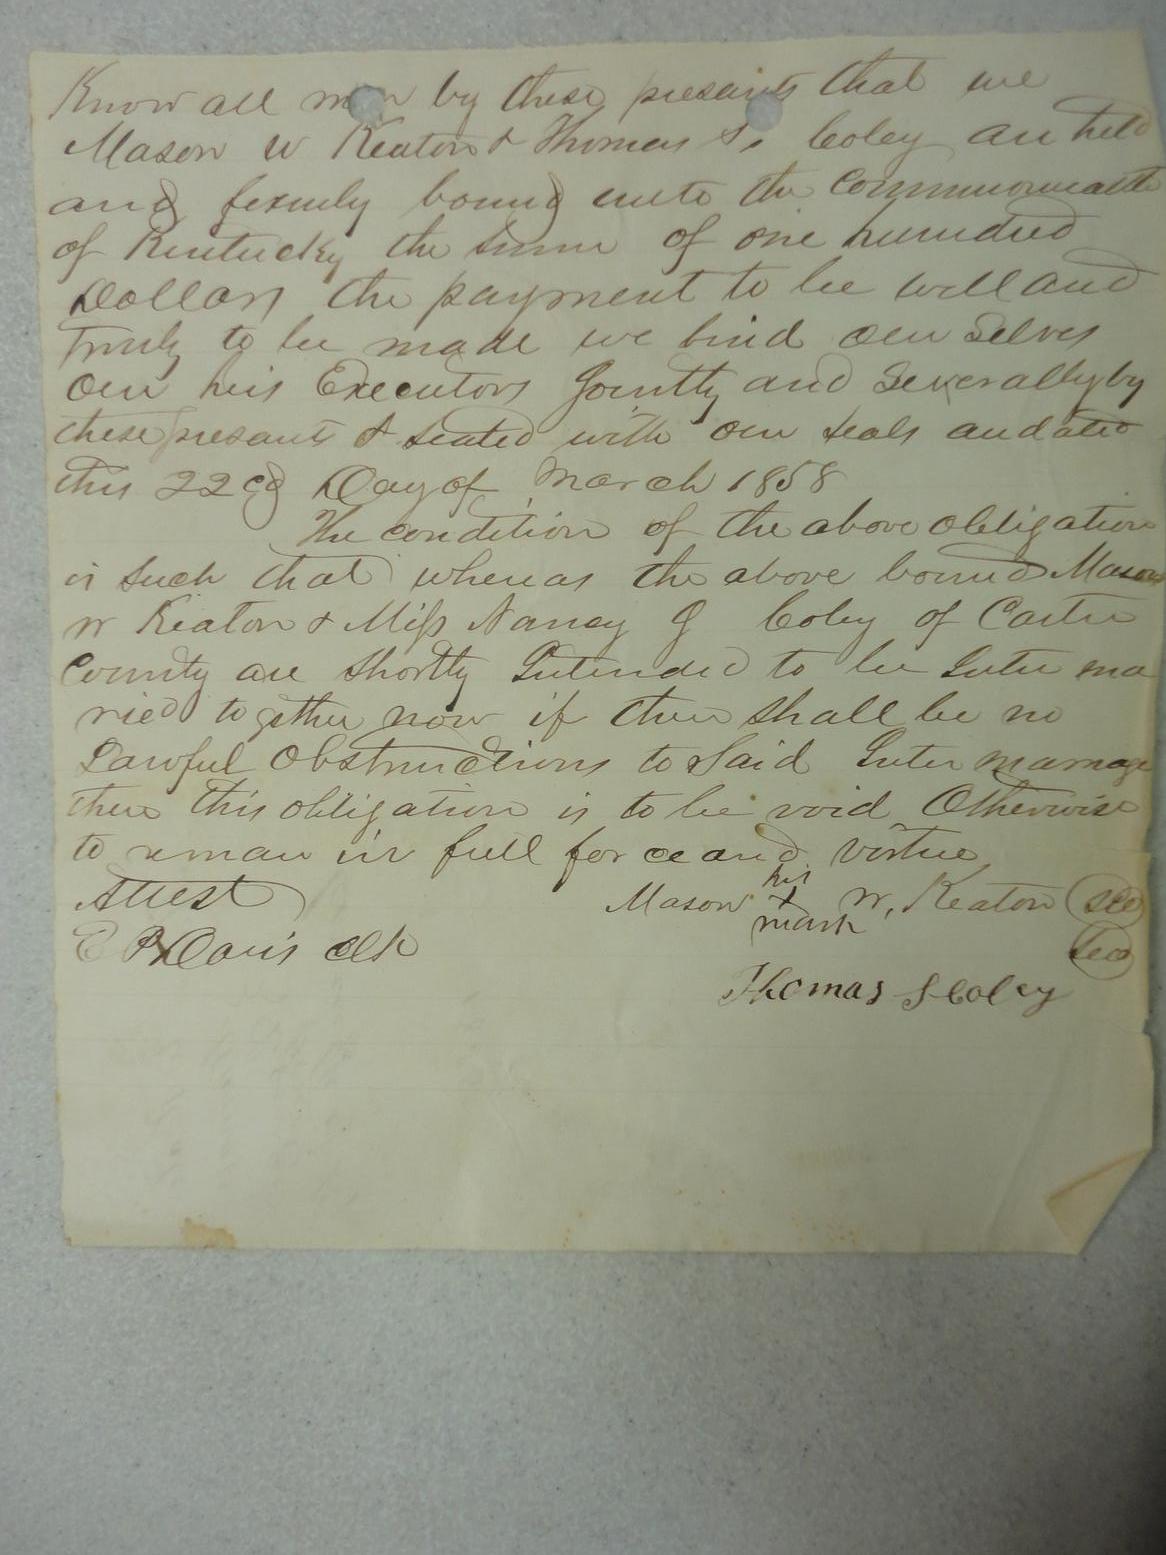 Know all men by these presants that we
Mason W Keaton & Thomas S. Coley are held
and firmly bound unto the Commonwealth
of Kentucky the sum of one hundred
Dollars the payment to be well and
truly to be made we bind our selves
our his Executors Jointly and Severally by
these presants & sealed with our seals and dated
this 22cd Day of March 1858
The condition of the above obligation
is such that whereas the above bound Mason
W Keaton & Miss Nancy J Coley of Carter
County are shortly Intended to be Inter ma
ried together now if there shall be no
Lawful Obstructions to Said Inter marrage
then this obligation is to be void Otherwise
to reman in full force and virtue
Attest
Mason his x mark W. Keaton seal
E P Davis clk
seal
Thomas S Coley